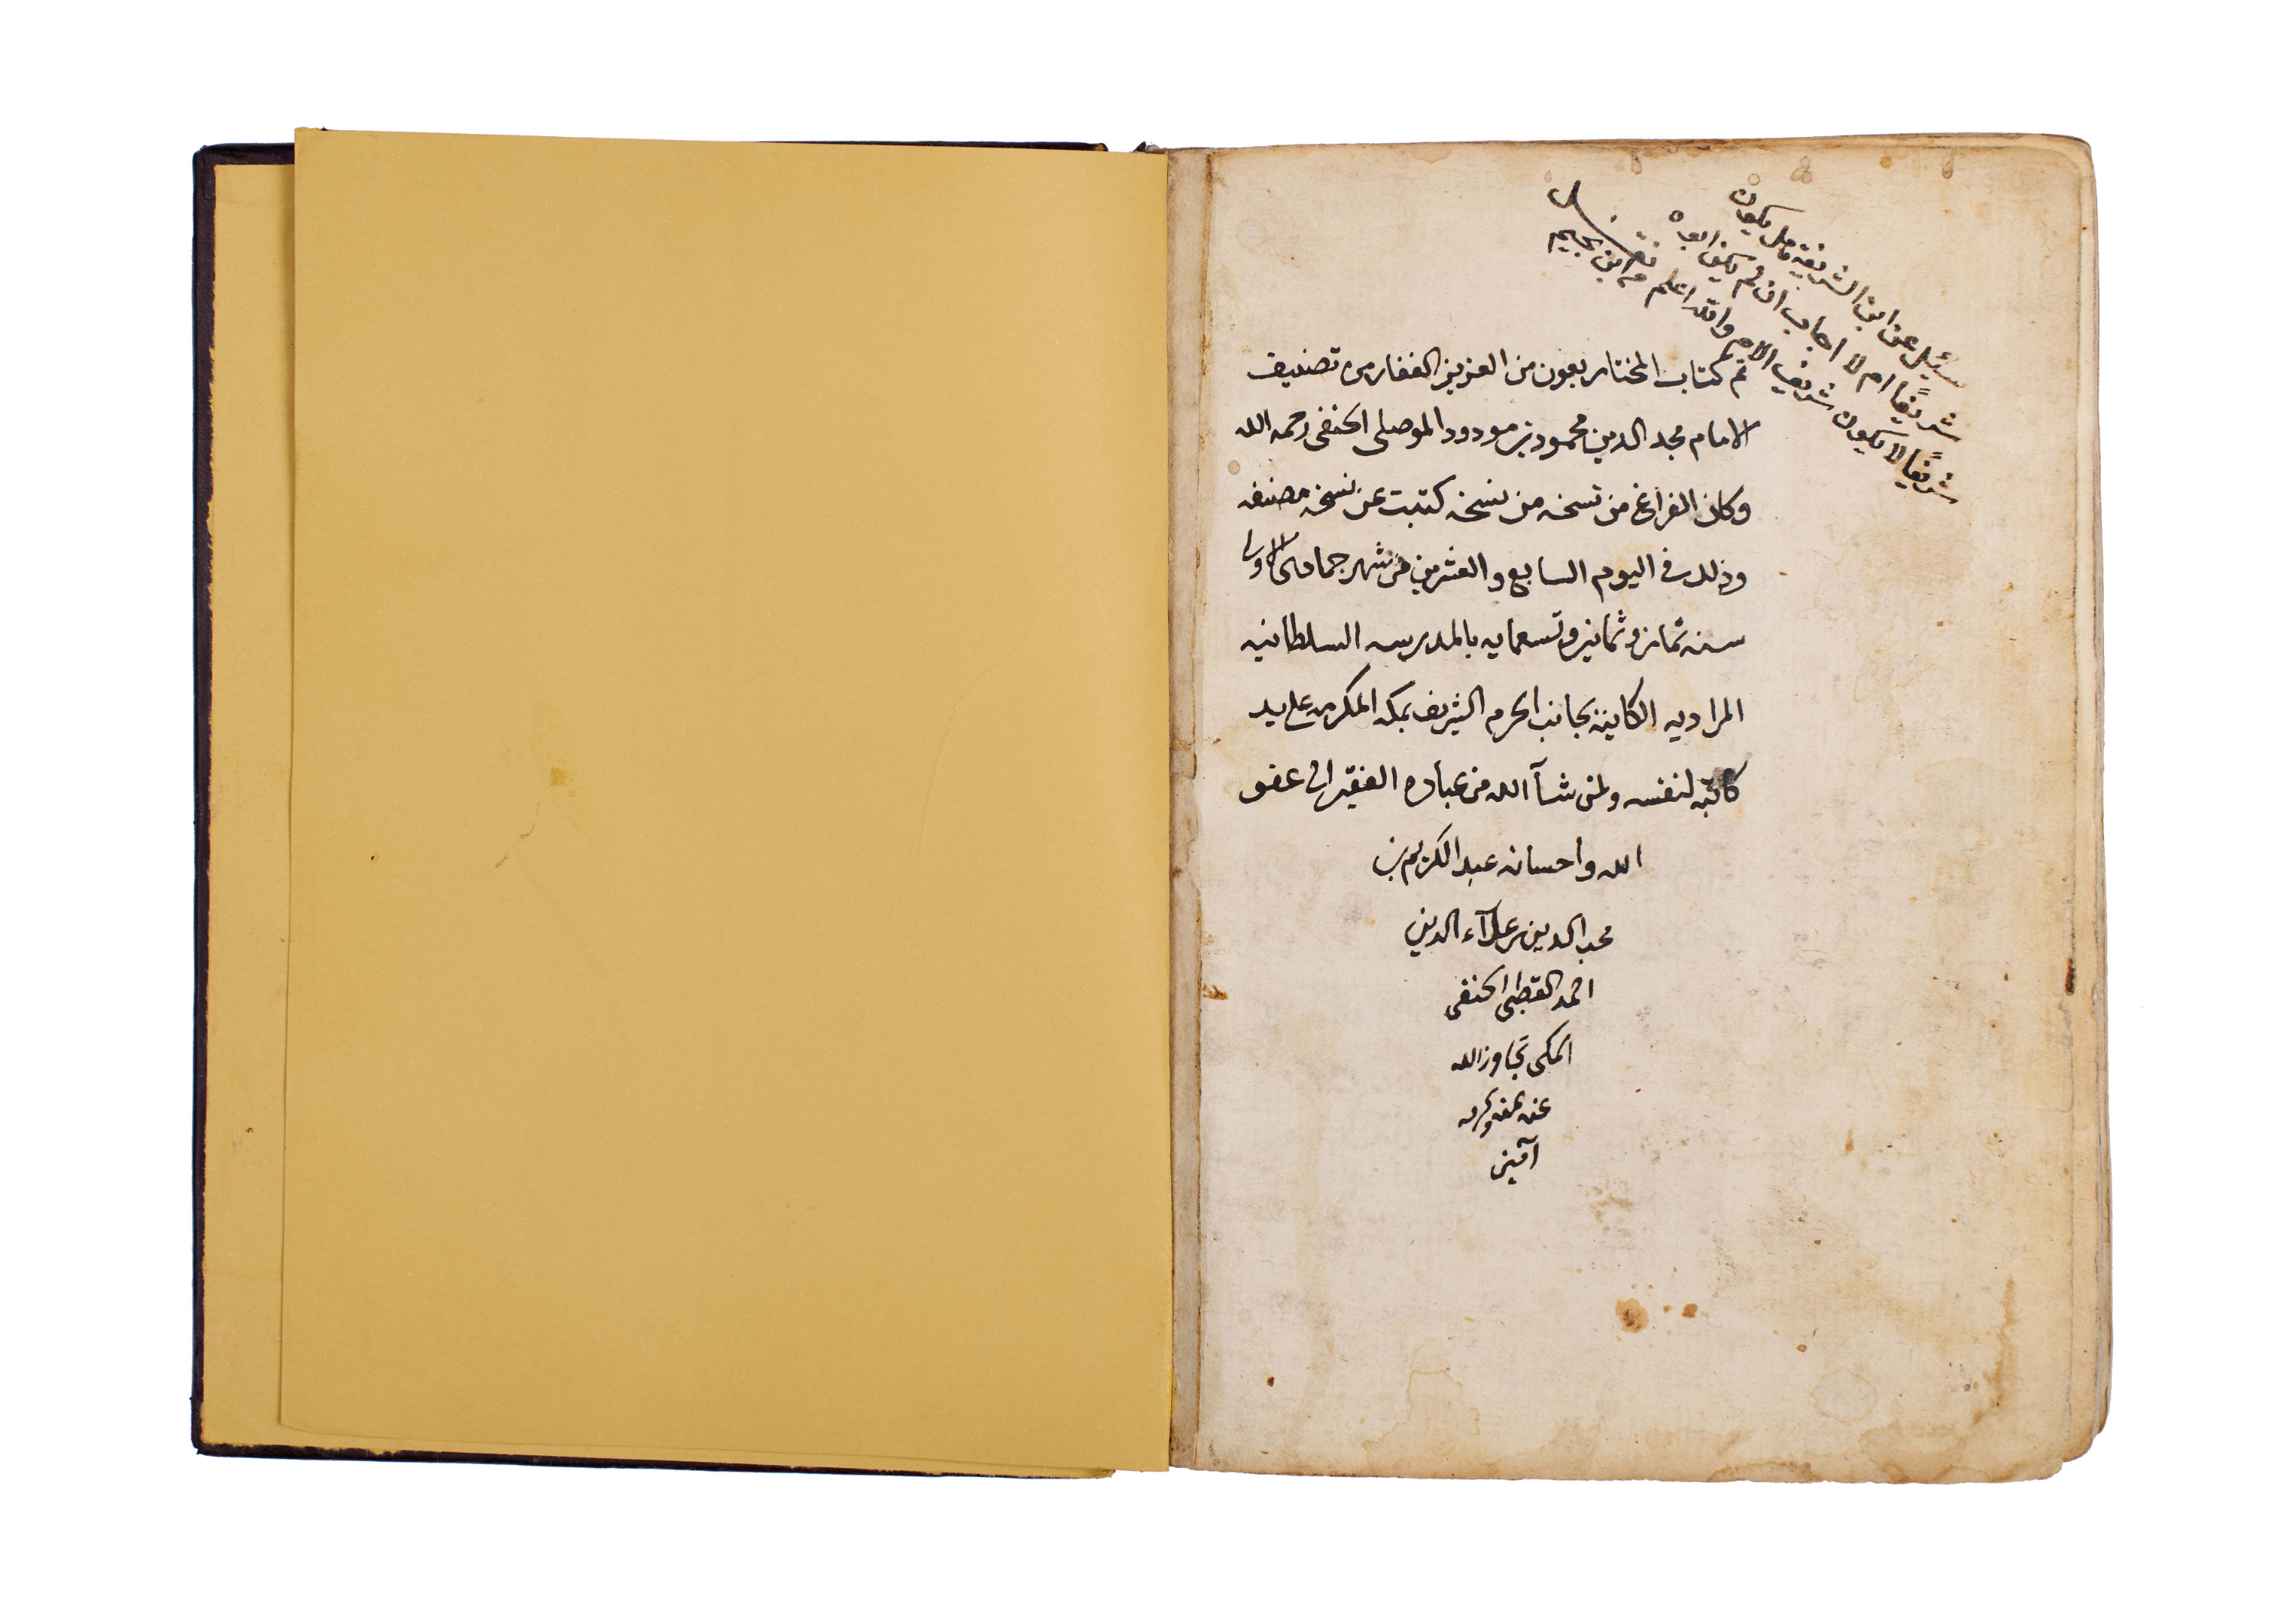 سئل عن ابن الشريفة هل يكون
شريفًا ام لا اجاب ان لم يكن ابوه
شريفًا لا يكون شريف الام والله اعلم من ابن نجيم
تم كتاب المختار بعون من العزيز الغفار من تصنيف
الامام مجد الدين محمود بن مودود الموصلي الحنفي رحمه الله
وكان الفراغ من نسخه من نسخه كتبت عن نسخة مصنفه
وذلك في اليوم السابع والعشرين من شهر جمادى الاولى
سنه ثمان وثمانين وتسعمايه بالمدرسه السلطانيه
المراديه الكاينة بجانب الحرم الشريف بمكه المكرمه على يد
كاتبه لنفسه ولمن شآ الله من عباده الفقير الى عفو
الله واحسانه عبد الكريم بن
محب الدين بن علآء الدين
احمد القطبي الحنفي
المكي تجاوز الله
عنه بمنه وكرمه
آمين